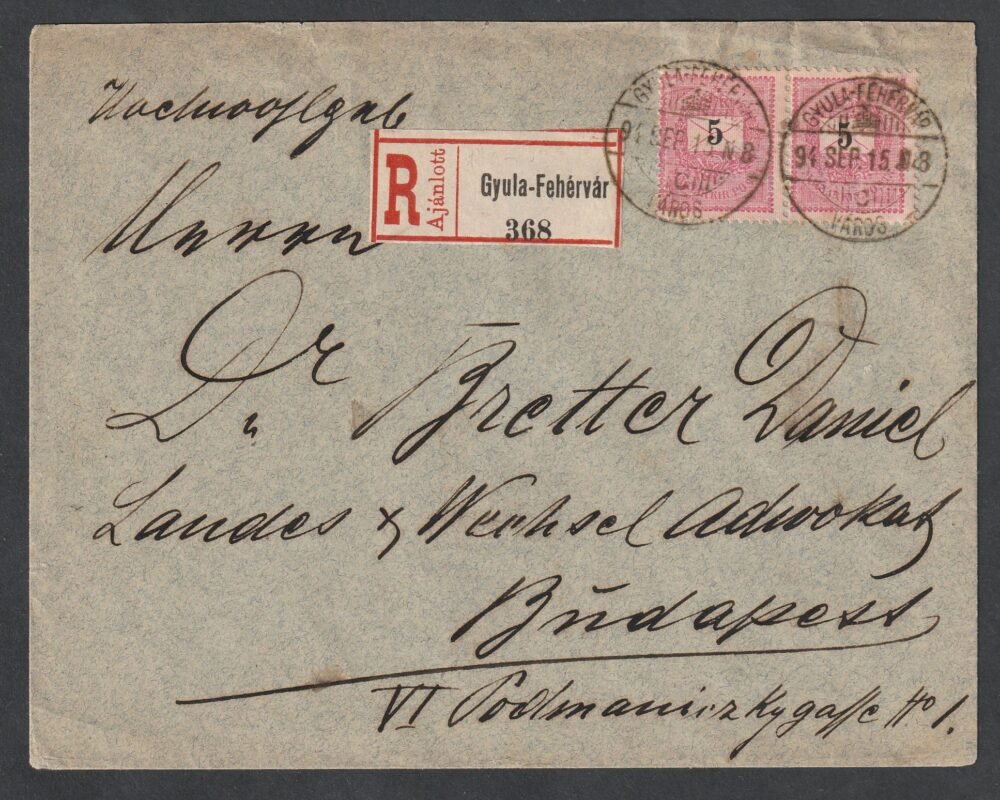 Hochwohlgeb
R Ajánlott Gyula-Fehérvár
368
5 5
GYULA-FEHÉRVÁR
94 SEP N8
VÁROS
GYULA-FEHÉRVÁR
94 SEP 15 N8
C
VÁROS
Herrn
Dr Bretter Daniel
Landes & Wechsel Adwokat
Budapest
VI Podmaniczkygasse No 1.